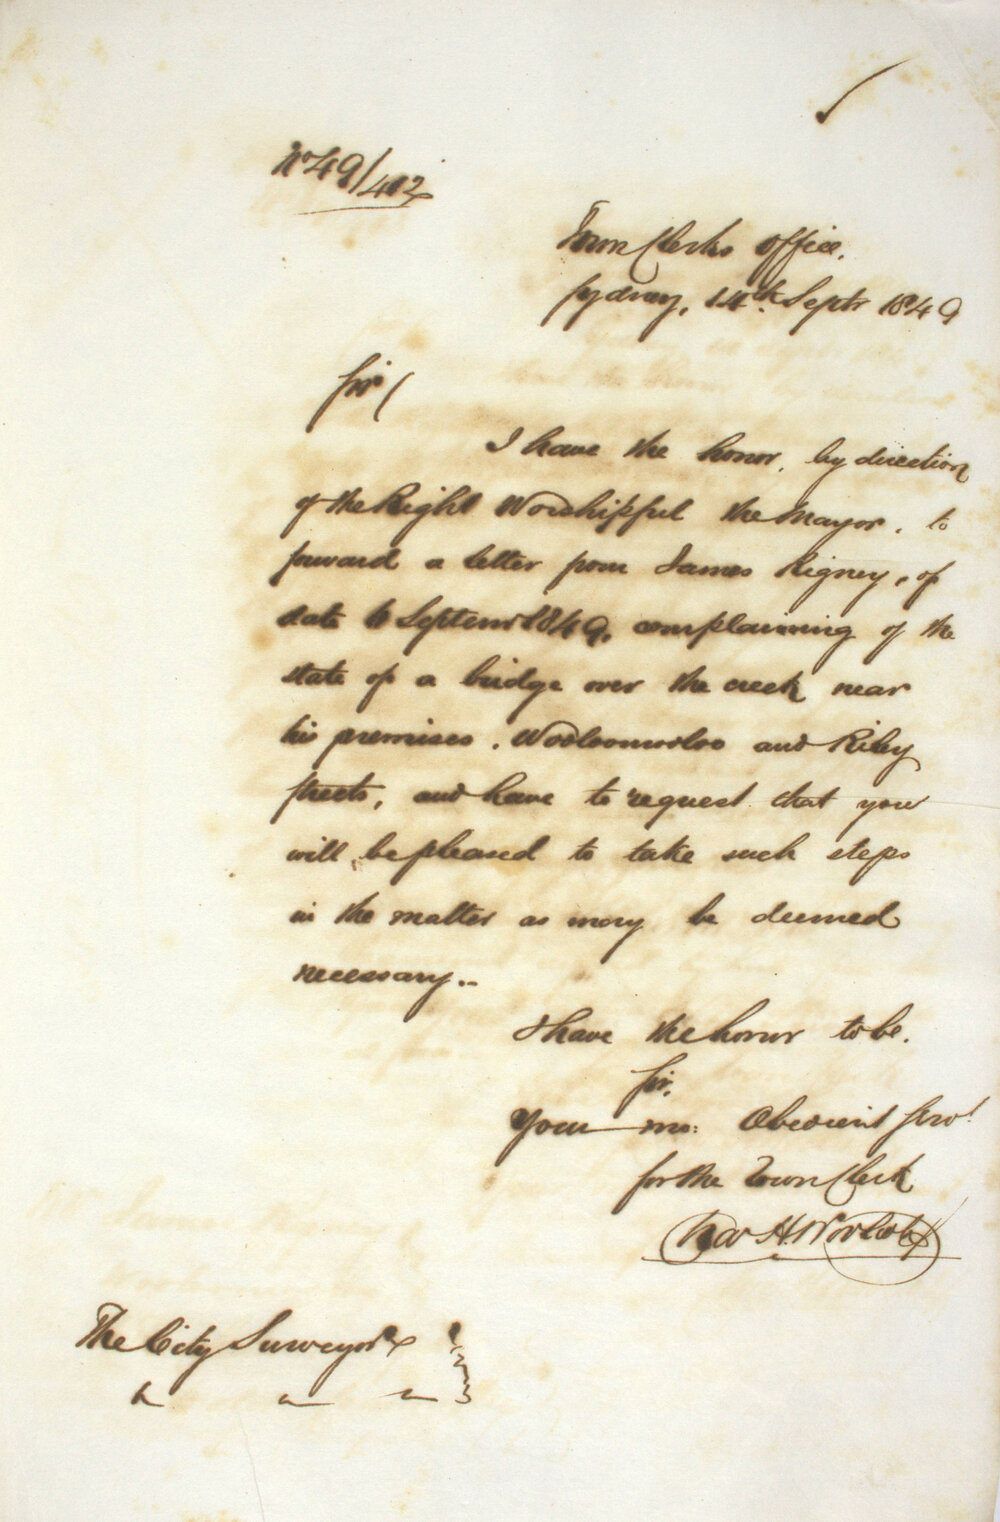 No 49/412
Town Clerks Office.
Sydney, 14th Septr 1849
Sir (
I have the honor, by direction
of the Right Worshipful the Mayor, to
forward a letter from James Rigney, of
date 6 Septemr 1849, complaining of the
state of a bridge over the creek near
his premises, Wooloomooloo and Riley
Streets, and have to request that you
will be pleased to take such steps
in the matter as may be deemed
necessary..
I have the honor to be.
Sir,
Your mo: Obedient Servt
for the Town Clerk
H. Worlock
The City Surveyor